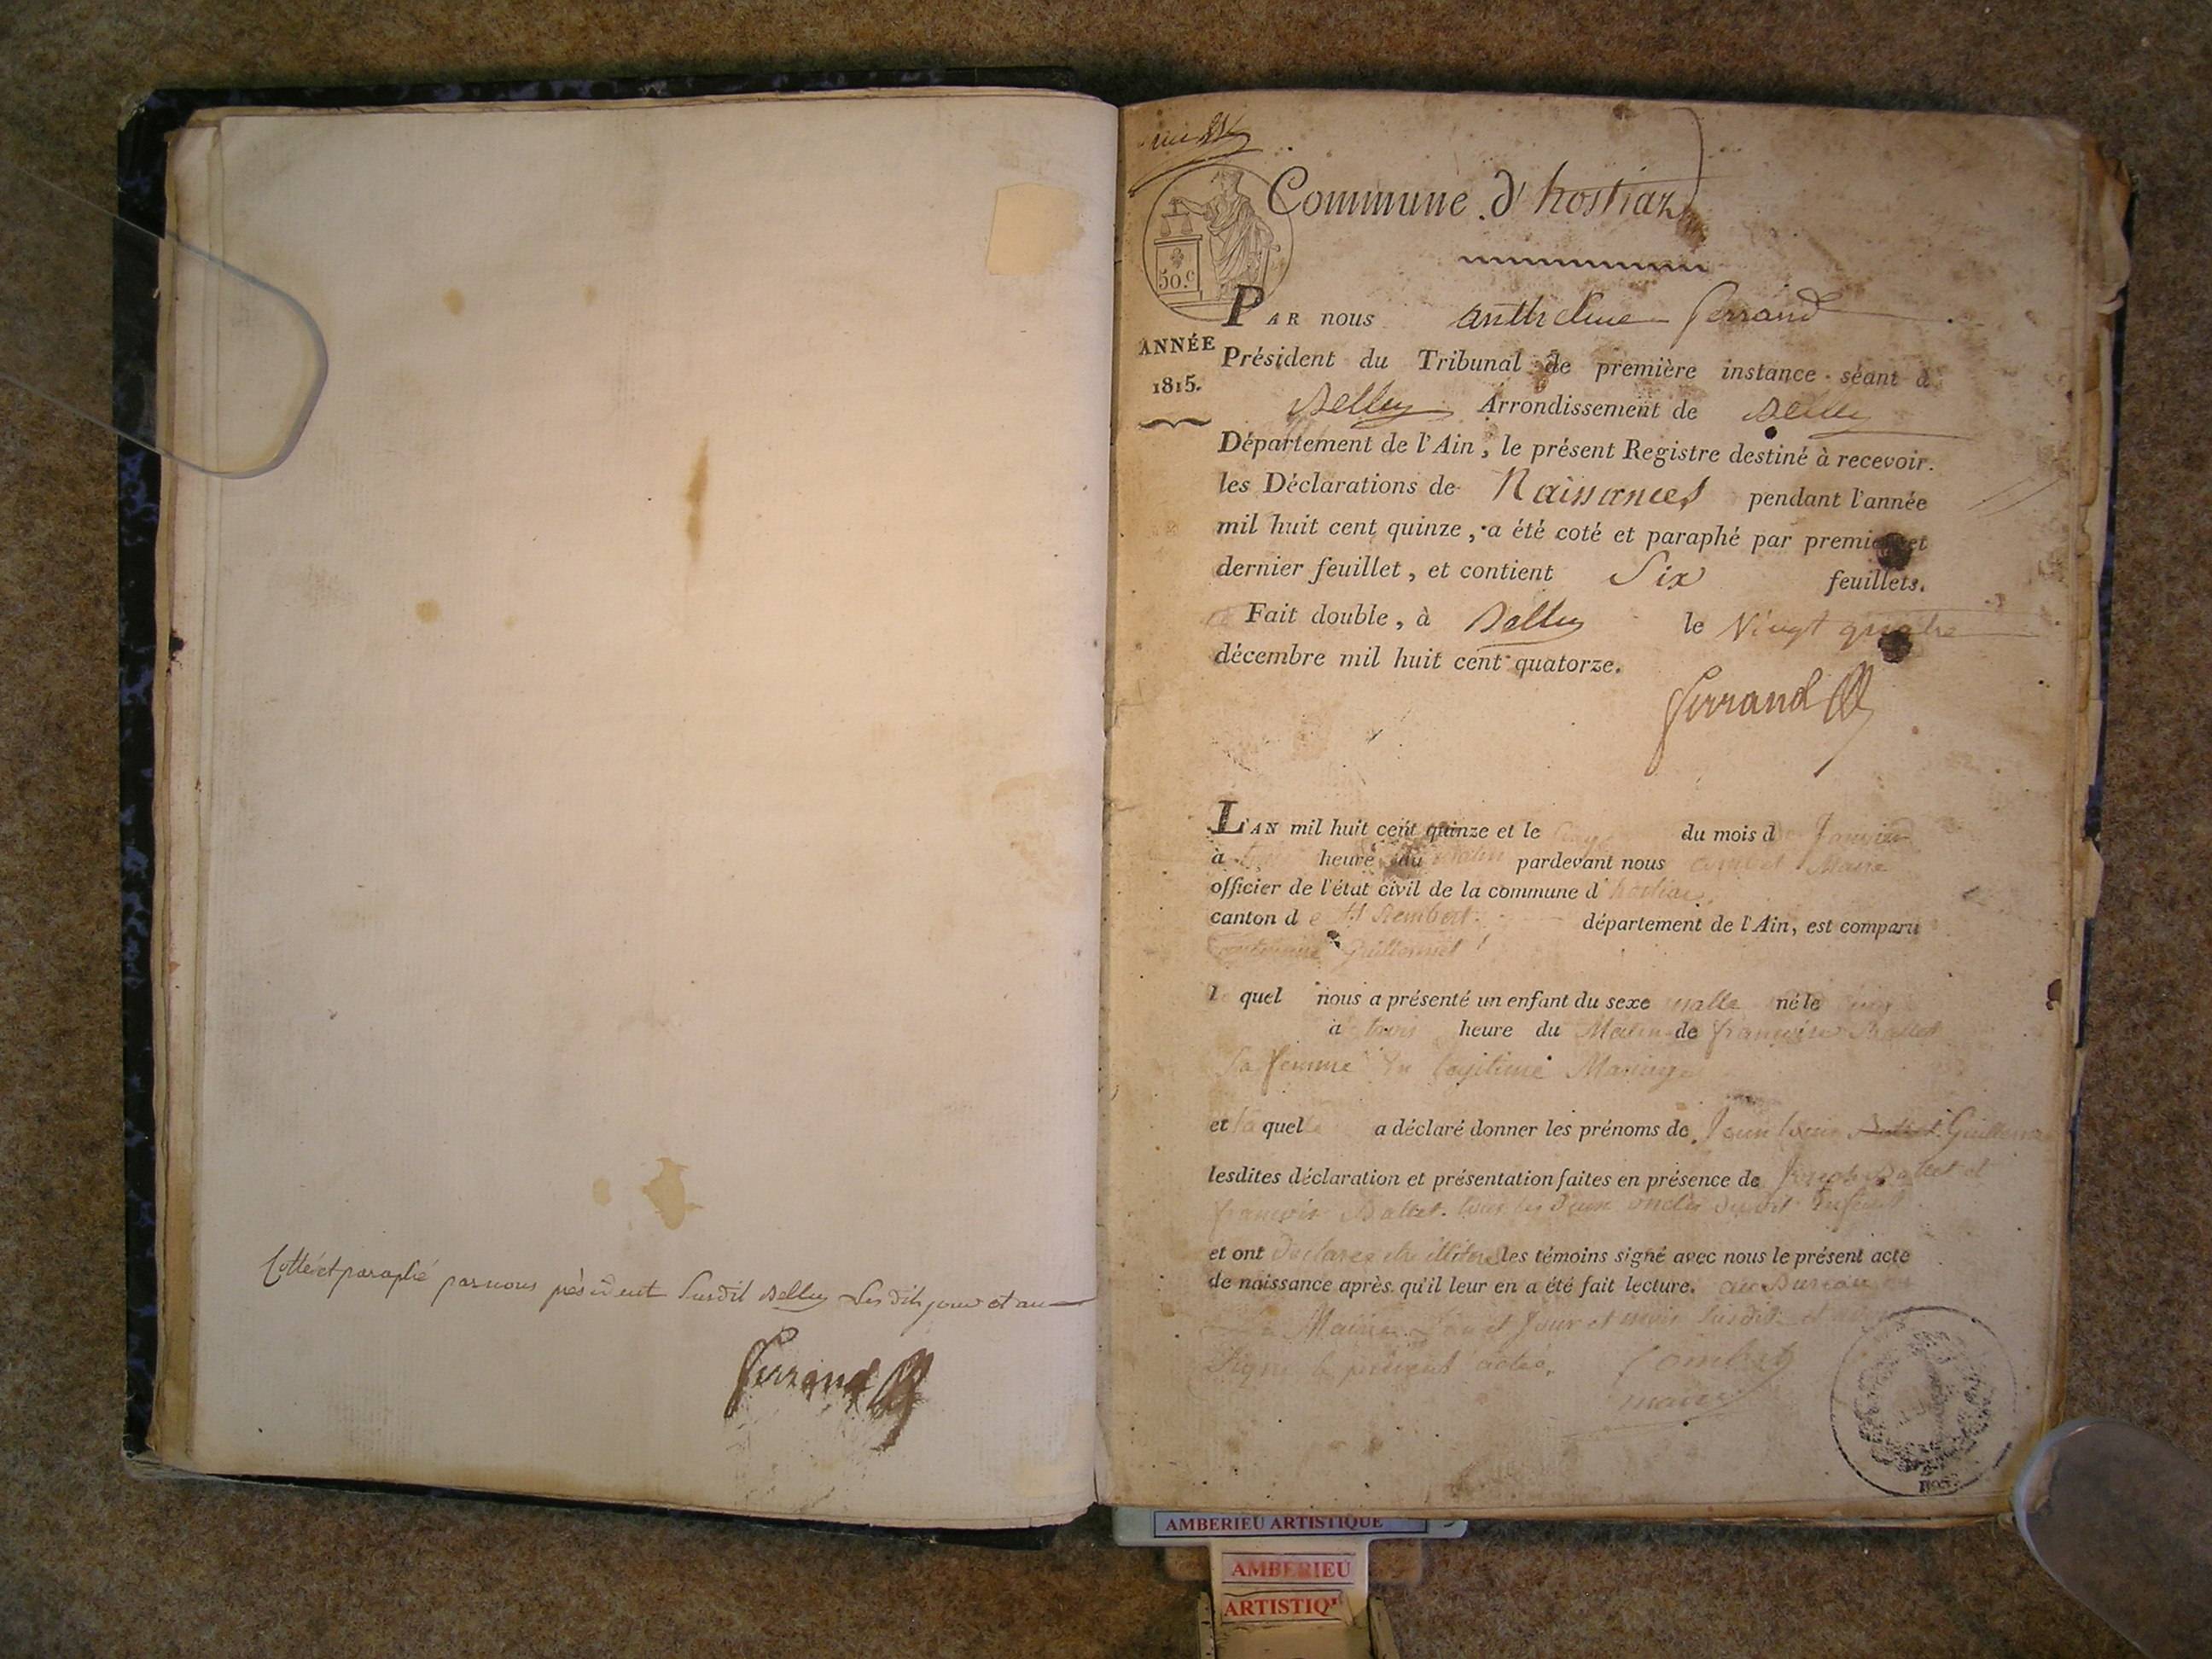 Cotté et paraphé par nous président Susdit Belley Les dits jour et an
Ferrand
Commune d'hostiaz
50.c
PAR nous anthelme Ferrand
ANNÉE
1815.
Président du Tribunal de première instance séant à
Belley Arrondissement de Belley
Département de l'Ain, le présent Registre destiné à recevoir
les Déclarations de Naissances pendant l'année
mil huit cent quinze, a été coté et paraphé par premier et
dernier feuillet, et contient Six feuillets.
Fait double, à Belley le Vingt quatre
décembre mil huit cent quatorze.
Ferrand
L'AN mil huit cent quinze et le du mois d Janvier
à heure du matin pardevant nous Maire
officier de l'état civil de la commune d'hostiaz
canton de St Rembert département de l'Ain, est comparu
Guillermet
l quel nous a présenté un enfant du sexe malle né le
à trois heure du Matin de françoise Ballet
Sa femme En legitime Mariage
et la quelle a déclaré donner les prénoms de Jean louis Guillerme
lesdites déclaration et présentation faites en présence de Joseph Ballet et
françois Ballet tous les deux oncles dudit Enfant
et ont déclaré être illitéré les témoins signé avec nous le présent acte
de naissance après qu'il leur en a été fait lecture. au Bureau
La Mairie et Jour et mois Susdit et
Signé le présent acte.
Combet
maire
AMBERIEU ARTISTIQUE
AMBERIEU
ARTISTIQ